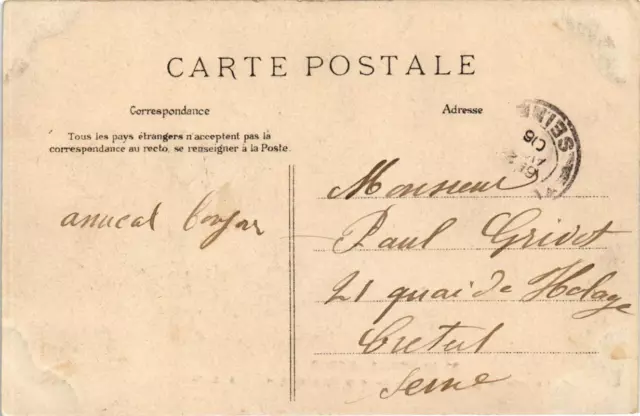 CARTE POSTALE
Correspondance
Adresse
Tous les pays étrangers n'acceptent pas la
correspondance au recto, se renseigner à la Poste.
SEINE
06
Monsieur
Paul Grivot
21 quai de Halage
Creteil
Seine